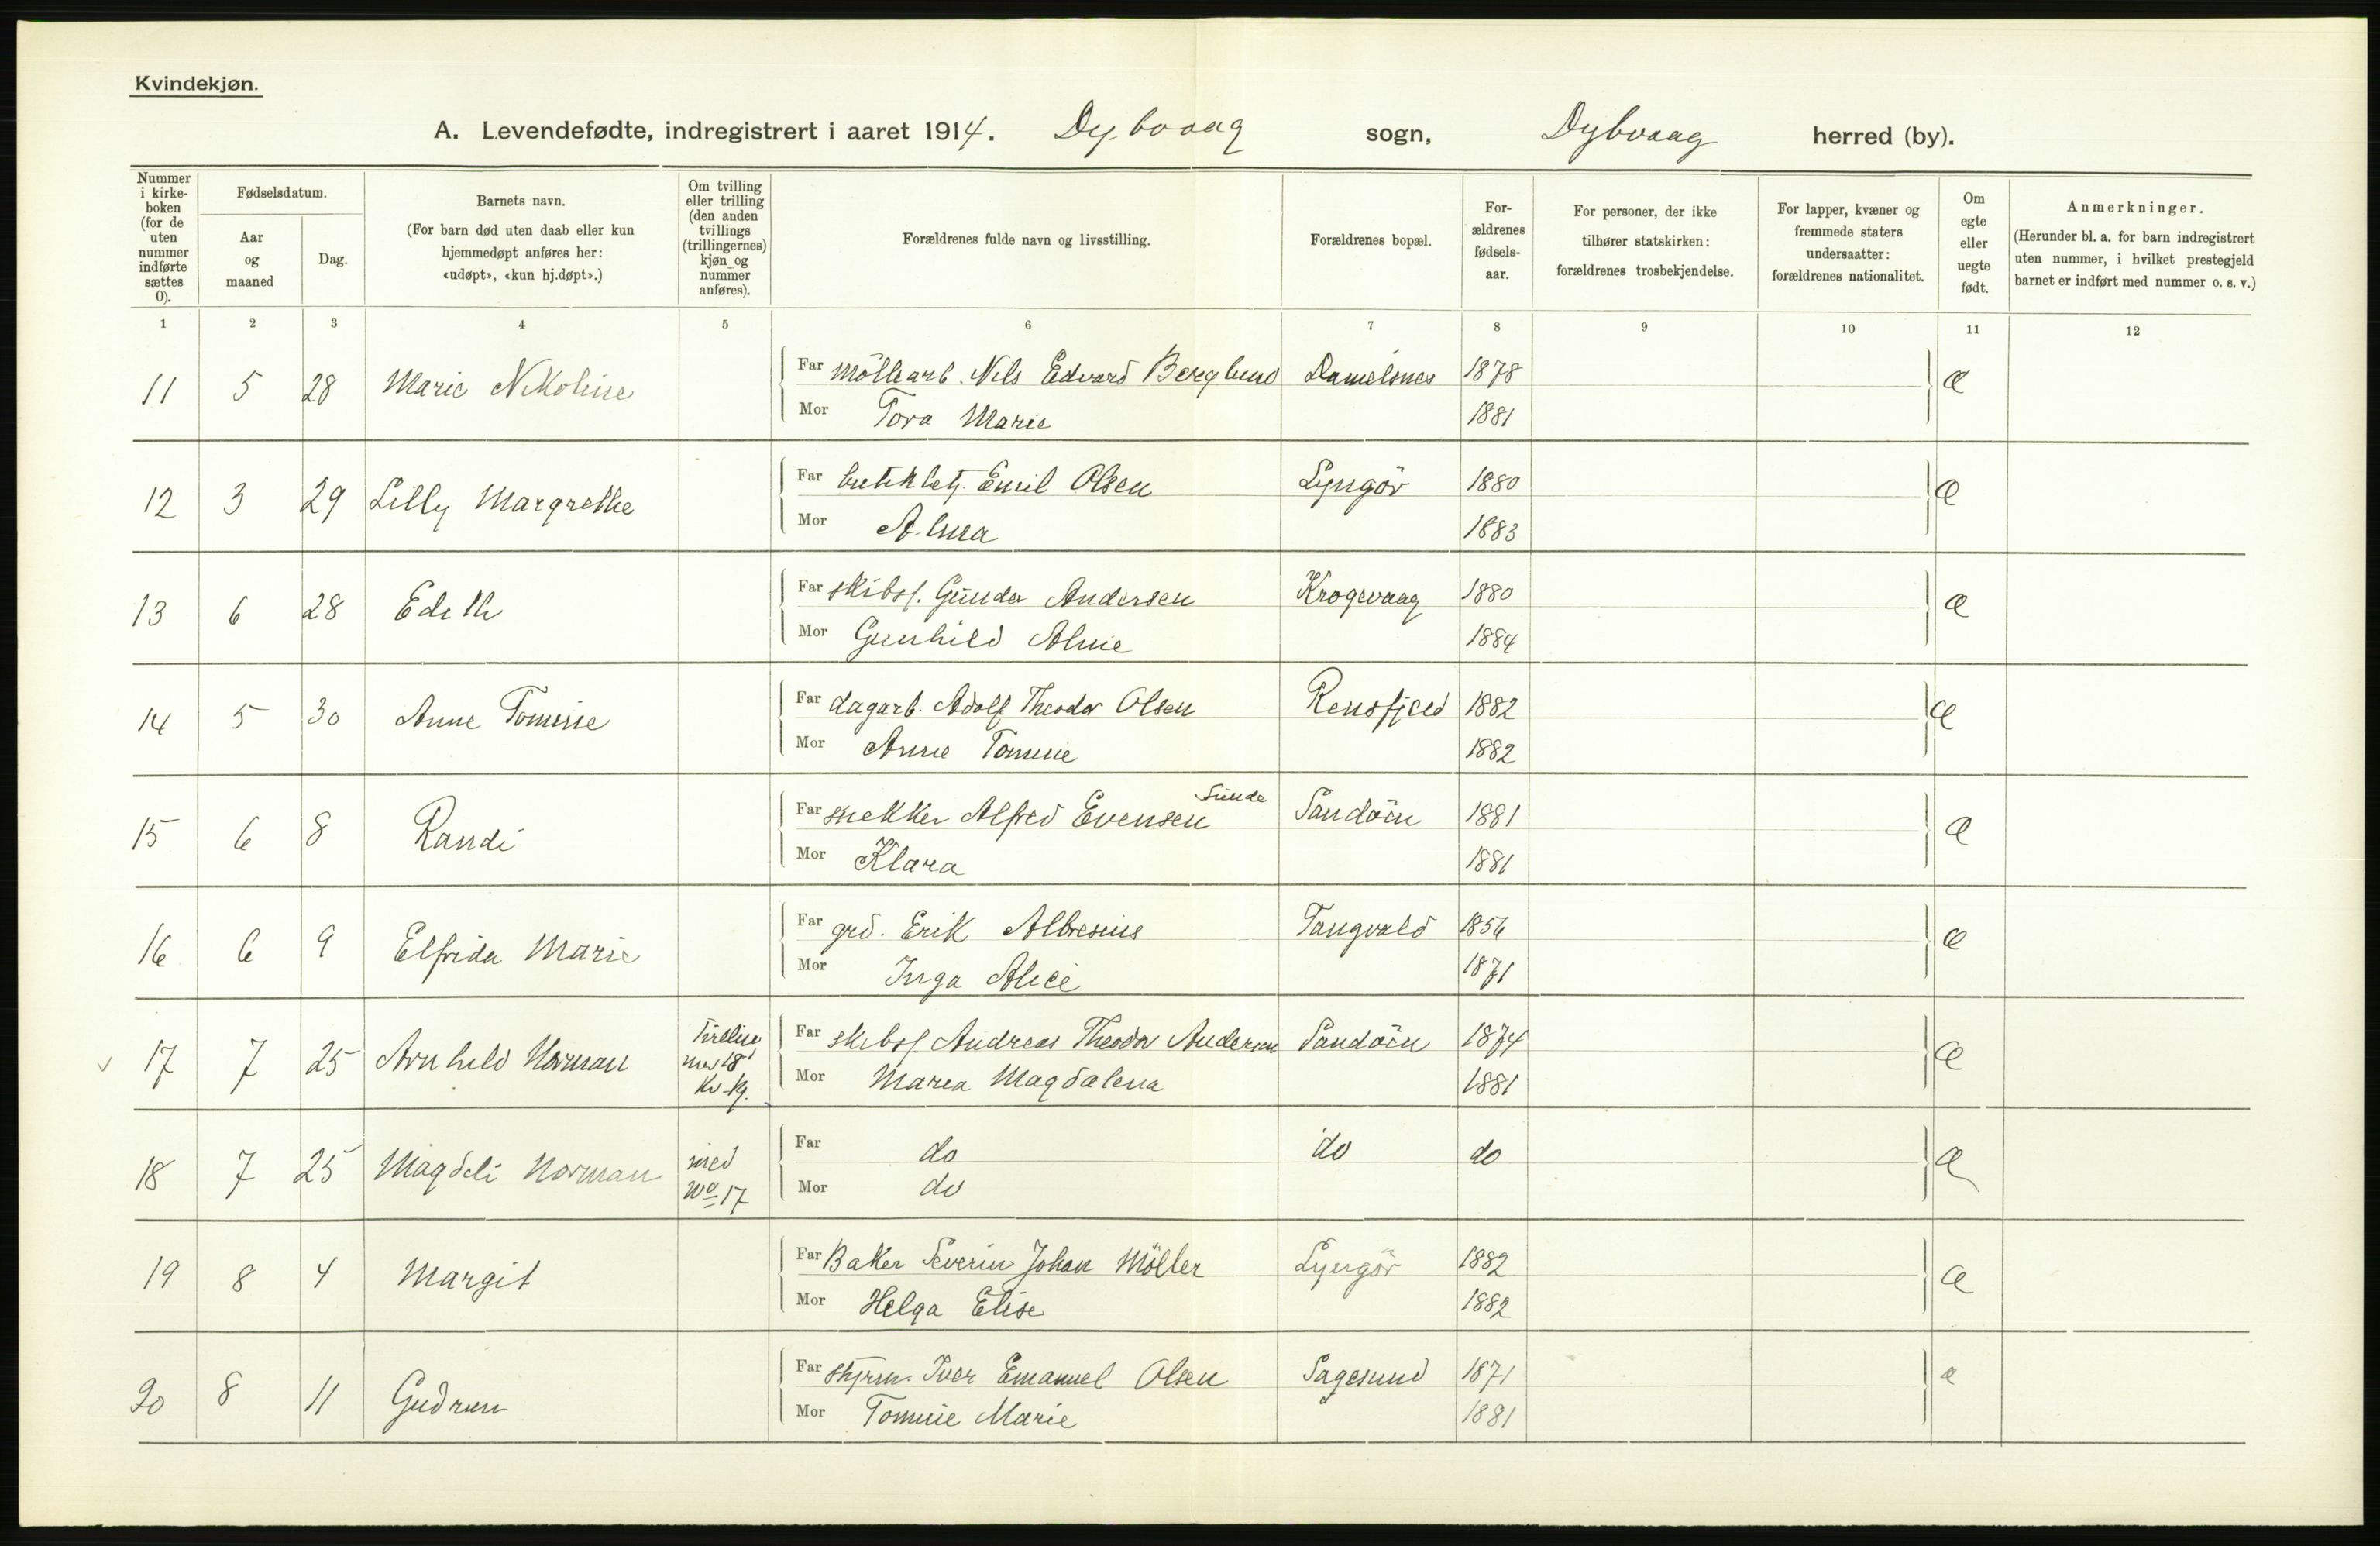 Kvindekjøn.
A. Levendefødte, indregistrert i aaret 1914. Dybvaag sogn, Dybvaag herred (by).
Nummer i kirke-boken (for de uten nummer indførte sættes 0).
Fødselsdatum.
Aar og maaned
Dag.
Barnets navn.
(For barn død uten daab eller kun hjemmedøpt anføres her: «udøpt», «kun hj.døpt».)
Om tvilling eller trilling (den anden tvillings (trillingernes) kjøn og nummer anføres).
Forældrenes fulde navn og livsstilling.
Forældrenes bopæl.
For-ældrenes fødsels-aar.
For personer, der ikke tilhører statskirken: forældrenes trosbekjendelse.
For lapper, kvæner og fremmede staters undersaatter: forældrenes nationalitet.
Om egte eller uegte født.
Anmerkninger.
(Herunder bl. a. for barn indregistrert uten nummer, i hvilket prestegjeld barnet er indført med nummer o. s. v.)
1 2 3 4 5 6 7 8 9 10 11 12
11 5 28 Marie Nikoline Far möllearb. Nils Edvard Berglund Danielsnes 1878 Æ
Mor Tora Marie 1881
12 3 29 Lilly Margrethe Far butikbetj. Emil Olsen Lyngör 1880 Æ
Mor Alma 1883
13 6 28 Edith Far skibsf. Gunder Andersen Krogevaag 1880 Æ
Mor Gunhild Aline 1884
14 5 30 Anne Tomine Far dagarb. Adolf Theodor Olsen Rensfjeld 1882 Æ
Mor Anne Tomine 1882
15 6 8 Randi Far snekker Alfred Evensen Sunde Sandöen 1881 Æ
Mor Klara 1881
16 6 9 Elfrida Marie Far grd. Erik Albresius Tangvald 1856 Æ
Mor Inga Alice 1871
17 7 25 Arnhild Norman med 18 Far skibsf. Andreas Theodor Andersen Sandöen 1874 Æ
Mor Maria Magdalena 1881
18 7 25 Magdeli Norman med No 17 Far do do do Æ
Mor do
19 8 4 Margit Far Baker Severin Johan Möller Lyngör 1882 Æ
Mor Helga Elise 1882
20 8 11 Gudrun Far styrm. Iver Emanuel Olsen Sagesund 1871 æ
Mor Tomine Marie 1881